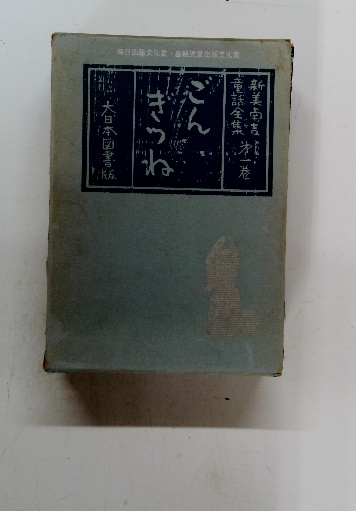 毎日出版文化賞・産経児童出版文化賞
新美南吉
童話全集 第一巻
ごん
ぎつね
大日本図書版